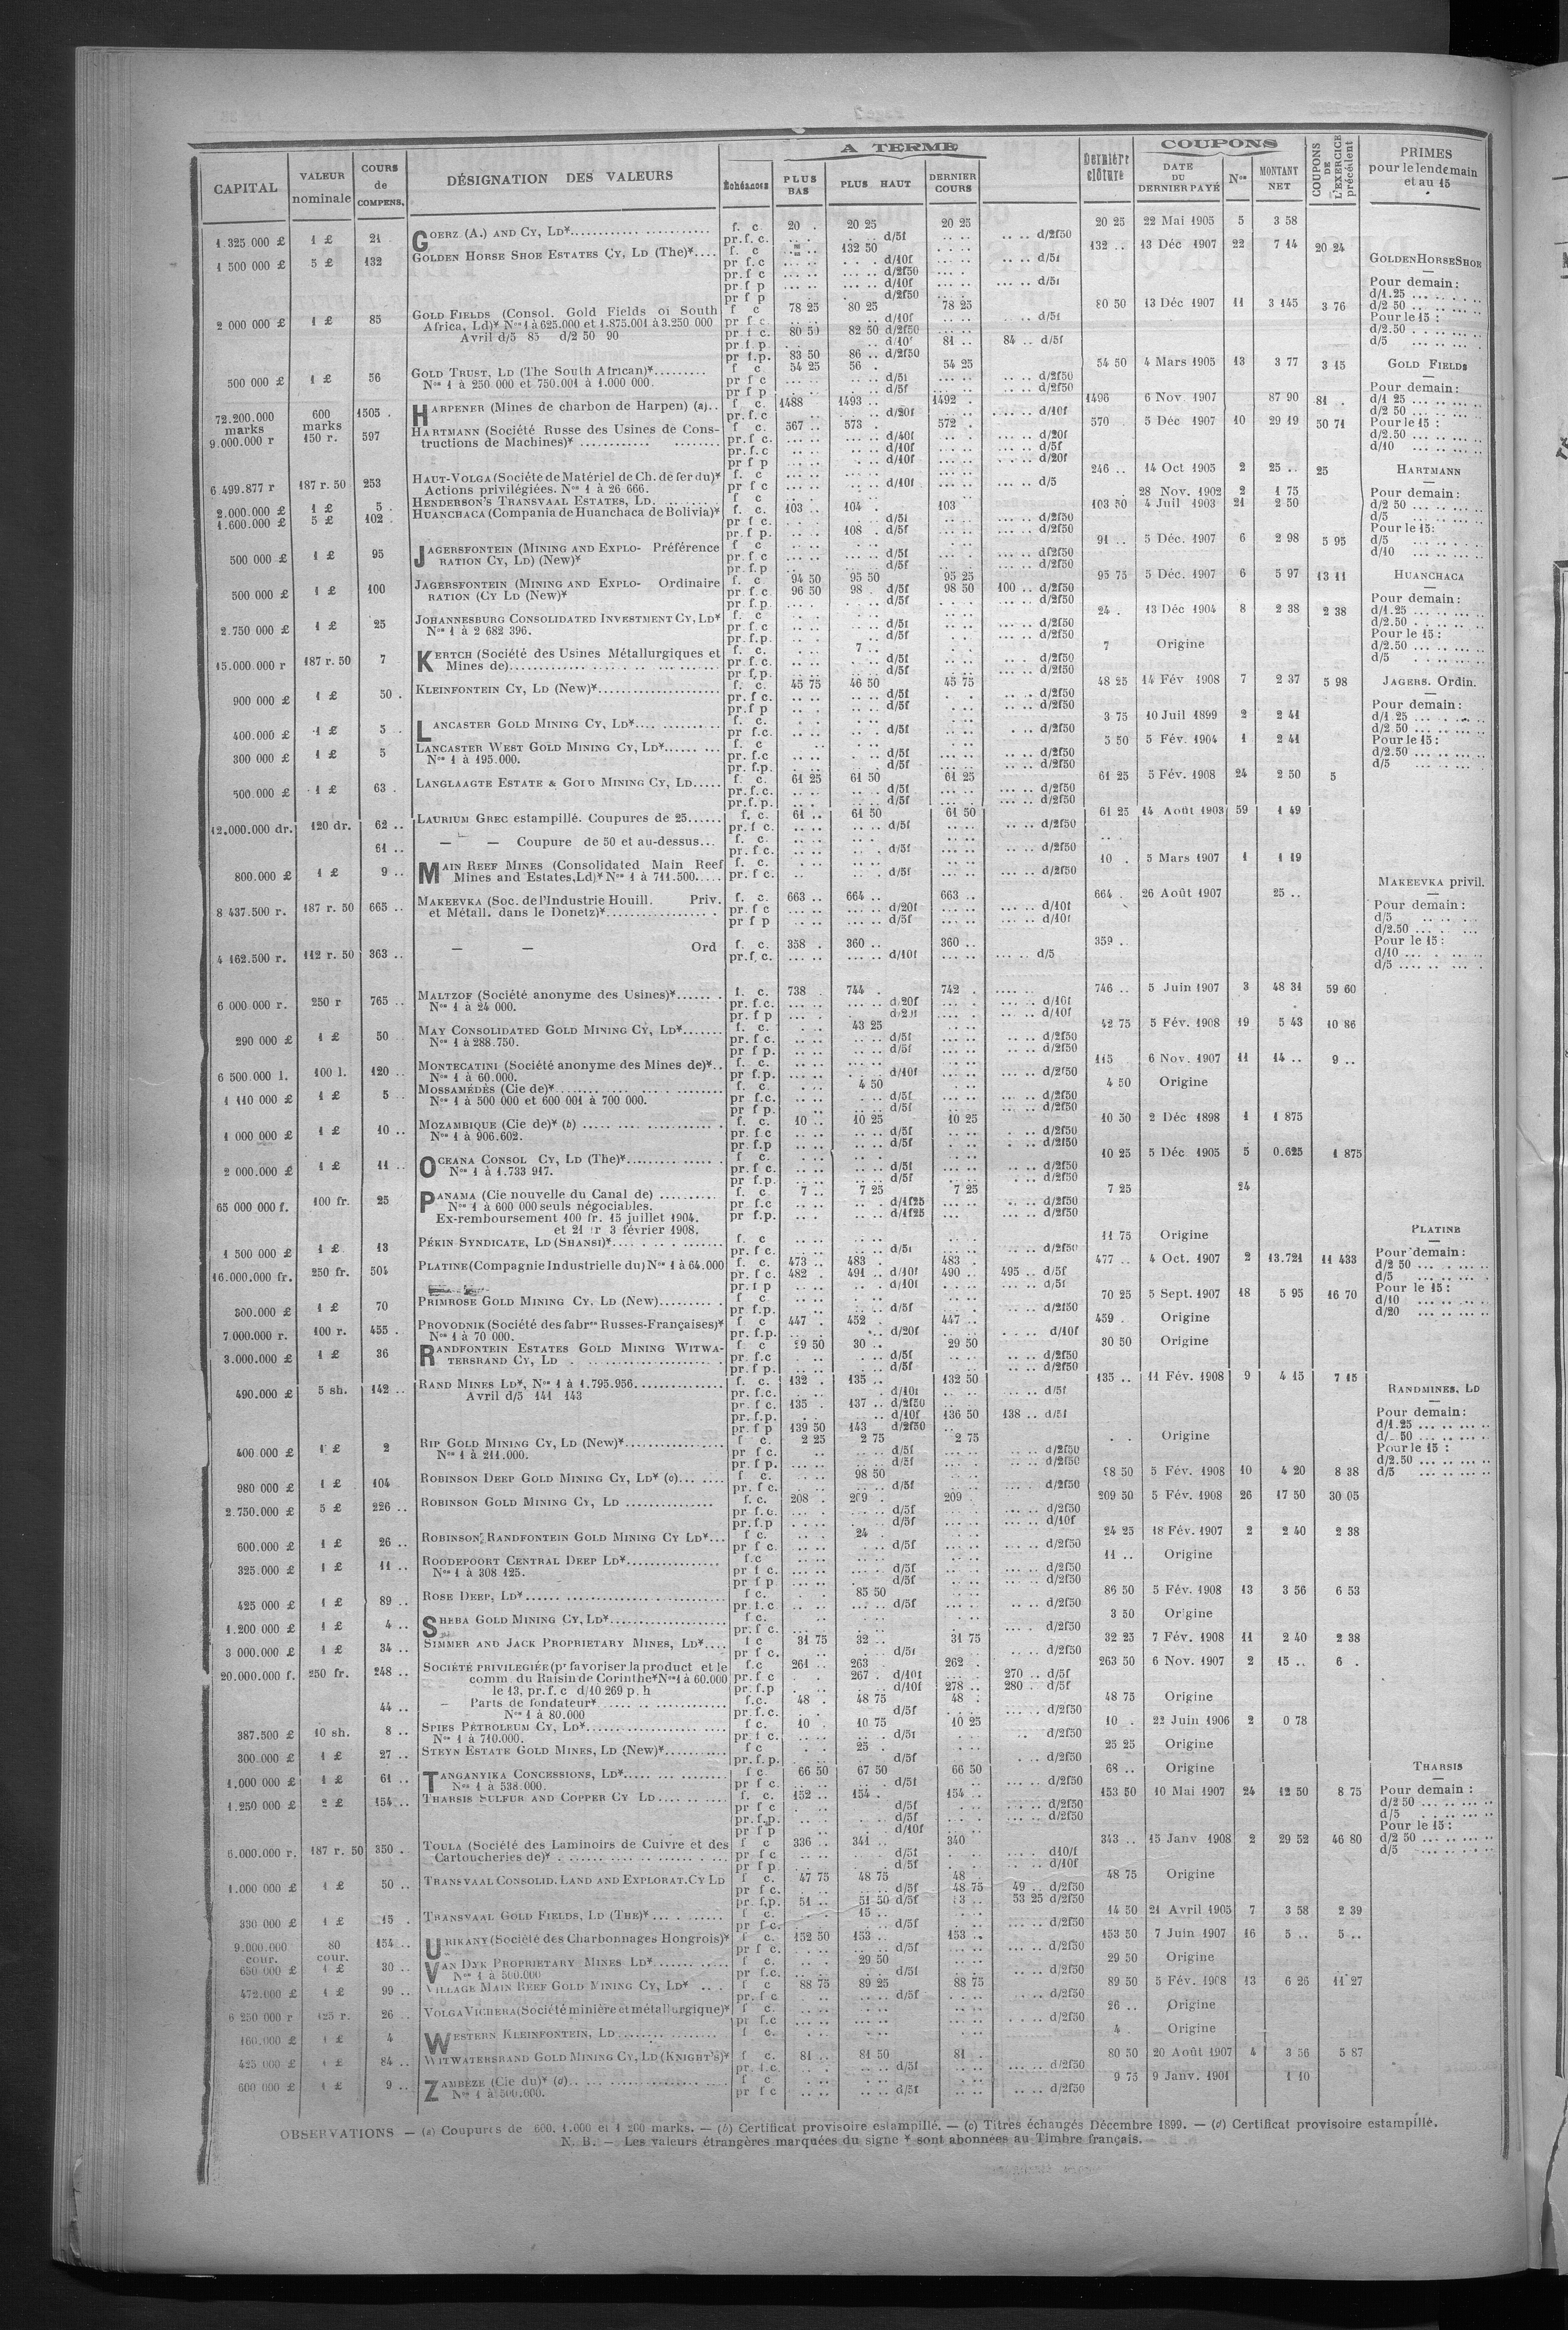 A TERME
COUPONS
CAPITAL VALEUR nominale COURS de COMPENS. DÉSIGNATION DES VALEURS Échéances PLUS BAS PLUS HAUT DERNIER COURS Dernière clôture DATE DU DERNIER PAYÉ Nos MONTANT NET COUPONS DE L'EXERCICE précédent PRIMES pour le lendemain et au 15
1.325 000 £ 1 £ 21 GOERZ (A.) AND CY, LD* f. c 20 . 20 25 20 25 20 25 22 Mai 1905 5 3 58
pr. f. c. d/5f d/2f50
1 500 000 £ 5 £ 132 GOLDEN HORSE SHOE ESTATES CY, LD (The)* f. c 132 50 132 .. 13 Déc 1907 22 7 14 20 24
pr f. c d/10f d/5f
pr f c d/2f50
pr f p d/10f d/5f
pr f p d/2f50
2 000 000 £ 1 £ 85 GOLD FIELDS (Consol. Gold Fields of South f c 78 25 80 25 78 25 80 50 13 Déc 1907 11 3 145 3 76
Africa, Ld)* Nos 1 à 625.000 et 1.875.001 à 3.250 000 pr f c. d/10f d/5f
Avril d/5 85 d/2 50 90 pr f c. 80 50 82 50 d/2f50
pr f. p d/10f 81 .. 84 .. d/5f
pr f.p. 83 50 86 .. d/2f50
500 000 £ 1 £ 56 GOLD TRUST, LD (The South African)* f c 54 25 56 . 54 25 54 50 4 Mars 1905 13 3 77 3 15
Nos 1 à 250 000 et 750.001 à 1.000 000. pr f c d/5f d/2f50
pr f p d/5f d/2f50
72.200.000 marks 600 marks 1505 . HARPENER (Mines de charbon de Harpen) (a).. f c. 1488 1493 .. 1492 . 1496 6 Nov. 1907 87 90 81 .
pr. f. c d/20f d/10f
9.000.000 r 150 r. 597 HARTMANN (Société Russe des Usines de Cons- f c. 567 .. 573 . 572 . 570 5 Déc 1907 10 29 19 50 71
tructions de Machines)* pr. f c. d/40f d/20f
pr. f. c d/10f d/5f
pr f p d/10f d/20f
6 499.877 r 187 r. 50 253 HAUT-VOLGA (Société de Matériel de Ch. de fer du)* f. c 246 .. 14 Oct 1905 2 25 .. 25
Actions privilégiées. Nos 1 à 26 666. pr f c d/10f d/5
2.000.000 £ 1 £ 5 . HENDERSON'S TRANSVAAL ESTATES, LD. f c 28 Nov. 1902 2 1 75
1.600.000 £ 5 £ 102 . HUANCHACA (Compania de Huanchaca de Bolivia)* f. c. 103 .. 104 . 103 103 50 4 Juil 1903 21 2 50
pr f c. d/5f d/2f50
pr. f p. 108 . d/5f d/2f50
500 000 £ 1 £ 95 JAGERSFONTEIN (MINING AND EXPLO- Préférence f c 91 .. 5 Déc. 1907 6 2 98 5 95
RATION CY, LD) (New)* pr. f c d/5f d/2f50
pr. f.p d/5f d/2f50
500 000 £ 1 £ 100 JAGERSFONTEIN (MINING AND EXPLO- Ordinaire f. c 94 50 95 50 95 25 95 75 5 Déc. 1907 6 5 97 13 11
RATION (CY LD (New)* pr. f c. 96 50 98 . d/5f 98 50 100 .. d/2f50
pr. f p. d/5f d/2f50
2.750 000 £ 1 £ 25 JOHANNESBURG CONSOLIDATED INVESTMENT CY, LD* f. c. 24 . 13 Déc 1904 8 2 38 2 38
Nos 1 à 2 682 396. pr f c d/5f d/2f50
pr. f.p. d/5f d/2f50
15.000.000 r 187 r. 50 7 KERTCH (Société des Usines Métallurgiques et f. c. 7 .. 7 Origine
Mines de) pr. f. c. d/5f d/2f50
pr. f. p. d/5f d/2f50
900 000 £ 1 £ 50 . KLEINFONTEIN CY, LD (New)* f. c. 45 75 46 50 45 75 48 25 14 Fév 1908 7 2 37 5 98
pr. f c. d/5f d/2f50
pr. f p d/5f d/2f50
400.000 £ 1 £ 3 . LANCASTER GOLD MINING CY, LD* f. c. 3 75 10 Juil 1899 2 2 41
pr f.c. d/5f d/2f50
300 000 £ 1 £ 5 LANCASTER WEST GOLD MINING CY, LD* f. c 5 50 5 Fév. 1904 1 2 41
Nos 1 à 195.000. pr. f.c d/5f d/2f50
pr. f.p. d/5f d/2f50
500.000 £ 1 £ 63 . LANGLAAGTE ESTATE & GOLD MINING CY, LD f. c. 61 25 61 50 61 25 61 25 5 Fév. 1908 24 2 50 5
pr. f.c. d/5f d/2f50
pr. f. p. d/5f d/2f50
12.000.000 dr. 120 dr. 62 .. LAURIUM GREC estampillé. Coupures de 25 f. c. 61 .. 61 50 61 50 61 25 14 Août 1903 59 1 49
pr. f c. d/5f d/2f50
61 .. — — Coupure de 50 et au-dessus f. c.
pr. f c. d/5f d/2f50
800.000 £ 1 £ 9 .. MAIN REEF MINES (Consolidated Main Reef f. c. 10 . 5 Mars 1907 1 1 19
Mines and Estates, Ld)* Nos 1 à 711.500. pr. f c. d/5f d/2f50
8 437.500 r. 187 r. 50 665 .. MAKEEVKA (Soc. de l'Industrie Houill. Priv. f. c. 663 .. 664 .. 663 .. 664 . 26 Août 1907 25 ..
et Métall. dans le Donetz)* pr. f c d/20f d/10f
pr f p d/5f d/10f
4 162.500 r. 112 r. 50 363 .. — — Ord f. c. 358 . 360 .. 360 .. 359 ..
pr. f. c. d/10f d/5
6 000 000 r. 250 r 765 .. MALTZOF (Société anonyme des Usines)* f. c. 738 744 . 742 . 746 .. 5 Juin 1907 3 48 31 59 60
Nos 1 à 24 000. pr. f.c. d/20f d/10f
pr f p d/20f d/10f
290 000 £ 1 £ 50 MAY CONSOLIDATED GOLD MINING CY, LD* f. c. 43 25 42 75 5 Fév. 1908 19 5 43 10 86
Nos 1 à 288.750. pr. f c. d/5f d/2f50
pr f p. d/5f d/2f50
6 500.000 l. 100 l. 120 .. MONTECATINI (Société anonyme des Mines de)* f. c. 115 6 Nov. 1907 11 14 .. 9 ..
Nos 1 à 60.000. pr. f.p. d/10f d/2f50
1 110 000 £ 1 £ 5 MOSSAMÉDÈS (Cie de)* f. c. 4 50 4 50 Origine
Nos 1 à 500 000 et 600 001 à 700 000. pr f.c. d/5f d/2f50
pr f p. d/5f d/2f50
1 000 000 £ 1 £ 10 .. MOZAMBIQUE (Cie de)* (b) f. c. 10 .. 10 25 10 25 10 50 2 Déc 1898 1 1 875
Nos 1 à 906.602. pr. f c d/5f d/2f50
pr. f.p d/5f d/2f50
2 000.000 £ 1 £ 11 .. OCEANA CONSOL CY, LD (The)* f c. 10 25 5 Déc 1905 5 0.625 1 875
Nos 1 à 1.733 917. pr. f c. d/5f d/2f50
pr f.p. d/5f d/2f50
65 000 000 f. 100 fr. 25 PANAMA (Cie nouvelle du Canal de) f. c. 7 .. 7 25 7 25 7 25 24
Nos 1 à 600 000 seuls négociables. pr f.c d/1f25 d/2f50
Ex-remboursement 100 fr. 15 juillet 1904. pr f.p. d/1f25 d/2f50
et 21 fr 3 février 1908.
1 500 000 £ 1 £ 13 PÉKIN SYNDICATE, LD (SHANSI)* f. c 11 75 Origine
pr. f c. d/5f d/2f50
16.000.000 fr. 250 fr. 504 PLATINE (Compagnie Industrielle du) Nos 1 à 64.000 f. c. 473 .. 483 . 483 . 477 .. 4 Oct. 1907 2 13.721 11 433
pr. f c. 482 . 491 .. d/10f 490 .. 495 .. d/5f
pr. f p d/10f d/5f
300.000 £ 1 £ 70 PRIMROSE GOLD MINING CY. LD (New) f c 70 25 5 Sept. 1907 18 5 95 16 70
pr. f.p. d/5f d/2f50
7.000.000 r. 100 r. 455 . PROVODNIK (Société des fabres Russes-Françaises)* f c 447 . 452 . 447 .. 459 . Origine
Nos 1 à 70 000. pr. f.p. d/20f d/10f
3.000.000 £ 1 £ 36 RANDFONTEIN ESTATES GOLD MINING WITWA- f. c 29 50 30 .. 29 50 30 50 Origine
TERSRAND CY, LD pr. f.c d/5f d/2f50
pr. f p. d/5f d/2f50
490.000 £ 5 sh. 142 .. RAND MINES LD*, Nos 1 à 1.795.956 f. c. 132 . 135 .. 132 50 135 .. 11 Fév. 1908 9 4 15 7 15
Avril d/5 141 143 pr. f.c. d/10f d/5f
pr. f c. 135 . 137 .. d/2f50
pr. f.p. d/10f 136 50 138 .. d/5f
pr. f p 139 50 143 d/2f50
400.000 £ 1 £ 2 RIP GOLD MINING CY, LD (New)* f c. 2 25 2 75 2 75 Origine
Nos 1 à 211.000. pr f c. d/5f d/2f50
pr. f p. d/5f d/2f50
980 000 £ 1 £ 104 ROBINSON DEEP GOLD MINING CY, LD* (c) f c. 98 50 98 50 5 Fév. 1908 10 4 20 8 38
pr. f c. d/5f d/2f50
2.750.000 £ 5 £ 226 .. ROBINSON GOLD MINING CY, LD f. c. 208 . 209 . 209 209 50 5 Fév. 1908 26 17 50 30 05
pr f.c. d/5f d/2f50
pr. f.p d/5f d/10f
600.000 £ 1 £ 26 .. ROBINSON RANDFONTEIN GOLD MINING CY LD* f c. 24 . 24 25 18 Fév. 1907 2 2 40 2 38
pr f c. d/5f d/2f50
325.000 £ 1 £ 11 .. ROODEPOORT CENTRAL DEEP LD* f.c 11 .. Origine
Nos 1 à 308 125. pr f c. d/5f d/2f50
pr f p d/5f d/2f50
425 000 £ 1 £ 89 .. ROSE DEEP, LD* f c. 85 50 86 50 5 Fév. 1908 13 3 56 6 53
pr. f.c d/5f d/2f50
1.200 000 £ 1 £ 4 .. SHEBA GOLD MINING CY, LD* f c. 3 50 Origine
pr. f c. d/2f50
3 000.000 £ 1 £ 34 .. SIMMER AND JACK PROPRIETARY MINES, LD* f c 31 75 32 .. 31 75 32 25 7 Fév. 1908 11 2 40 2 38
pr f c. d/5f d/2f50
20.000.000 f. 250 fr. 248 .. SOCIÉTÉ PRIVILÉGIÉE (pr favoriser la product et le f.c 261 .. 263 262 . 263 50 6 Nov. 1907 2 15 .. 6 .
comm. du Raisin de Corinthe* Nos 1 à 60.000 pr. f c 267 . d/10f 270 .. d/5f
le 13, pr. f. c d/10 269 p. h pr. f.p d/10f 278 .. 280 . d/5f
44 .. — Parts de fondateur* f.c. 48 . 48 75 48 . 48 75 Origine
Nos 1 à 80.000 pr. f.c. d/5f d/2f50
387.500 £ 10 sh. 8 .. SPIES PÉTROLEUM CY, LD* f c. 10 . 10 75 10 25 10 . 22 Juin 1906 2 0 78
Nos 1 à 710.000. pr f c. d/5f d/2f50
300.000 £ 1 £ 27 .. STEYN ESTATE GOLD MINES, LD (New)* f c 25 . 25 25 Origine
pr. f. p. d/5f d/2f50
1.000 000 £ 1 £ 61 .. TANGANYIKA CONCESSIONS, LD* f c. 66 50 67 50 66 50 68 .. Origine
Nos 1 à 538.000. pr f c. d/5f d/2f50
1.250 000 £ 2 £ 154 .. THARSIS SULFUR AND COPPER CY LD f. c. 152 .. 154 . 154 .. 153 50 10 Mai 1907 24 12 50 8 75
pr f c d/5f d/2f50
pr. f.p. d/5f d/2f50
pr f p d/10f
6.000.000 r. 187 r. 50 350 . TOULA (Société des Laminoirs de Cuivre et des f c 336 .. 341 .. 340 343 .. 15 Janv 1908 2 29 52 46 80
Cartoucheries de)* pr f c d/5f d10/f
pr f p d/5f d/10f
1.000 000 £ 1 £ 50 .. TRANSVAAL CONSOLID. LAND AND EXPLORAT. CY LD f c. 47 75 48 75 48 48 75 Origine
pr f c. d/5f 48 75 49 .. d/2f50
pr. f.p. 51 .. 51 50 d/5f 53 25 d/2f50
330 000 £ 1 £ 15 . TRANSVAAL GOLD FIELDS, LD (THE)* f c. 15 .. 14 50 21 Avril 1905 7 3 58 2 39
pr f c. d/5f d/2f50
9.000.000 cour. 80 cour. 154 .. URIKANY (Société des Charbonnages Hongrois)* f c. 152 50 153 .. 153 .. 153 50 7 Juin 1907 16 5 .. 5 ..
pr f c. d/5f d/2f50
650 000 £ 1 £ 30 .. VAN DYK PROPRIETARY MINES LD* f c. 29 50 29 50 Origine
Nos 1 à 500.000 pr f.c. d/5f d/2f50
472.000 £ 1 £ 99 .. VILLAGE MAIN REEF GOLD MINING CY, LD* f c 88 75 89 25 88 75 89 50 5 Fév. 1908 13 6 26 11 27
pr. f c d/5f d/2f50
6 250 000 r 125 r. 26 .. VOLGA VICHERA (Société minière et métallurgique)* f c. 26 .. Origine
pr f.c d/2f50
160.000 £ 1 £ 4 WESTERN KLEINFONTEIN, LD f c. 4 . Origine
425 000 £ 1 £ 84 .. WITWATERSRAND GOLD MINING CY, LD (KNIGHT'S)* f c. 81 .. 81 50 81 . 80 50 20 Août 1907 4 3 56 5 87
pr. f.c. d/5f d/2f50
600 000 £ 1 £ 9 .. ZAMBÈZE (Cie du)* (d) f c 9 75 9 Janv. 1901 1 10
Nos 1 à 500.000. pr f c d/5f d/2f50
GOLDEN HORSE SHOE
Pour demain:
d/1.25
d/2 50
Pour le 15:
d/2.50
d/5
GOLD FIELDS
Pour demain:
d/1 25
d/2 50
Pour le 15:
d/2.50
d/10
HARTMANN
Pour demain:
d/2 50
d/5
Pour le 15:
d/5
d/10
HUANCHACA
Pour demain:
d/1.25
d/2.50
Pour le 15:
d/2.50
d/5
JAGERS. Ordin.
Pour demain:
d/1 25
d/2 50
Pour le 15:
d/2.50
d/5
MAKEEVKA privil.
Pour demain:
d/5
d/2.50
Pour le 15:
d/10
d/5
PLATINE
Pour demain:
d/2 50
d/5
Pour le 15:
d/10
d/20
RANDMINES, LD
Pour demain:
d/1.25
d/2.50
Pour le 15:
d/2.50
d/5
THARSIS
Pour demain:
d/2 50
d/5
Pour le 15:
d/2 50
d/5
OBSERVATIONS — (a) Coupures de 600, 1.000 et 1 200 marks. — (b) Certificat provisoire estampillé. — (c) Titres échangés Décembre 1899. — (d) Certificat provisoire estampillé.
N. B. — Les valeurs étrangères marquées du signe * sont abonnées au Timbre français.